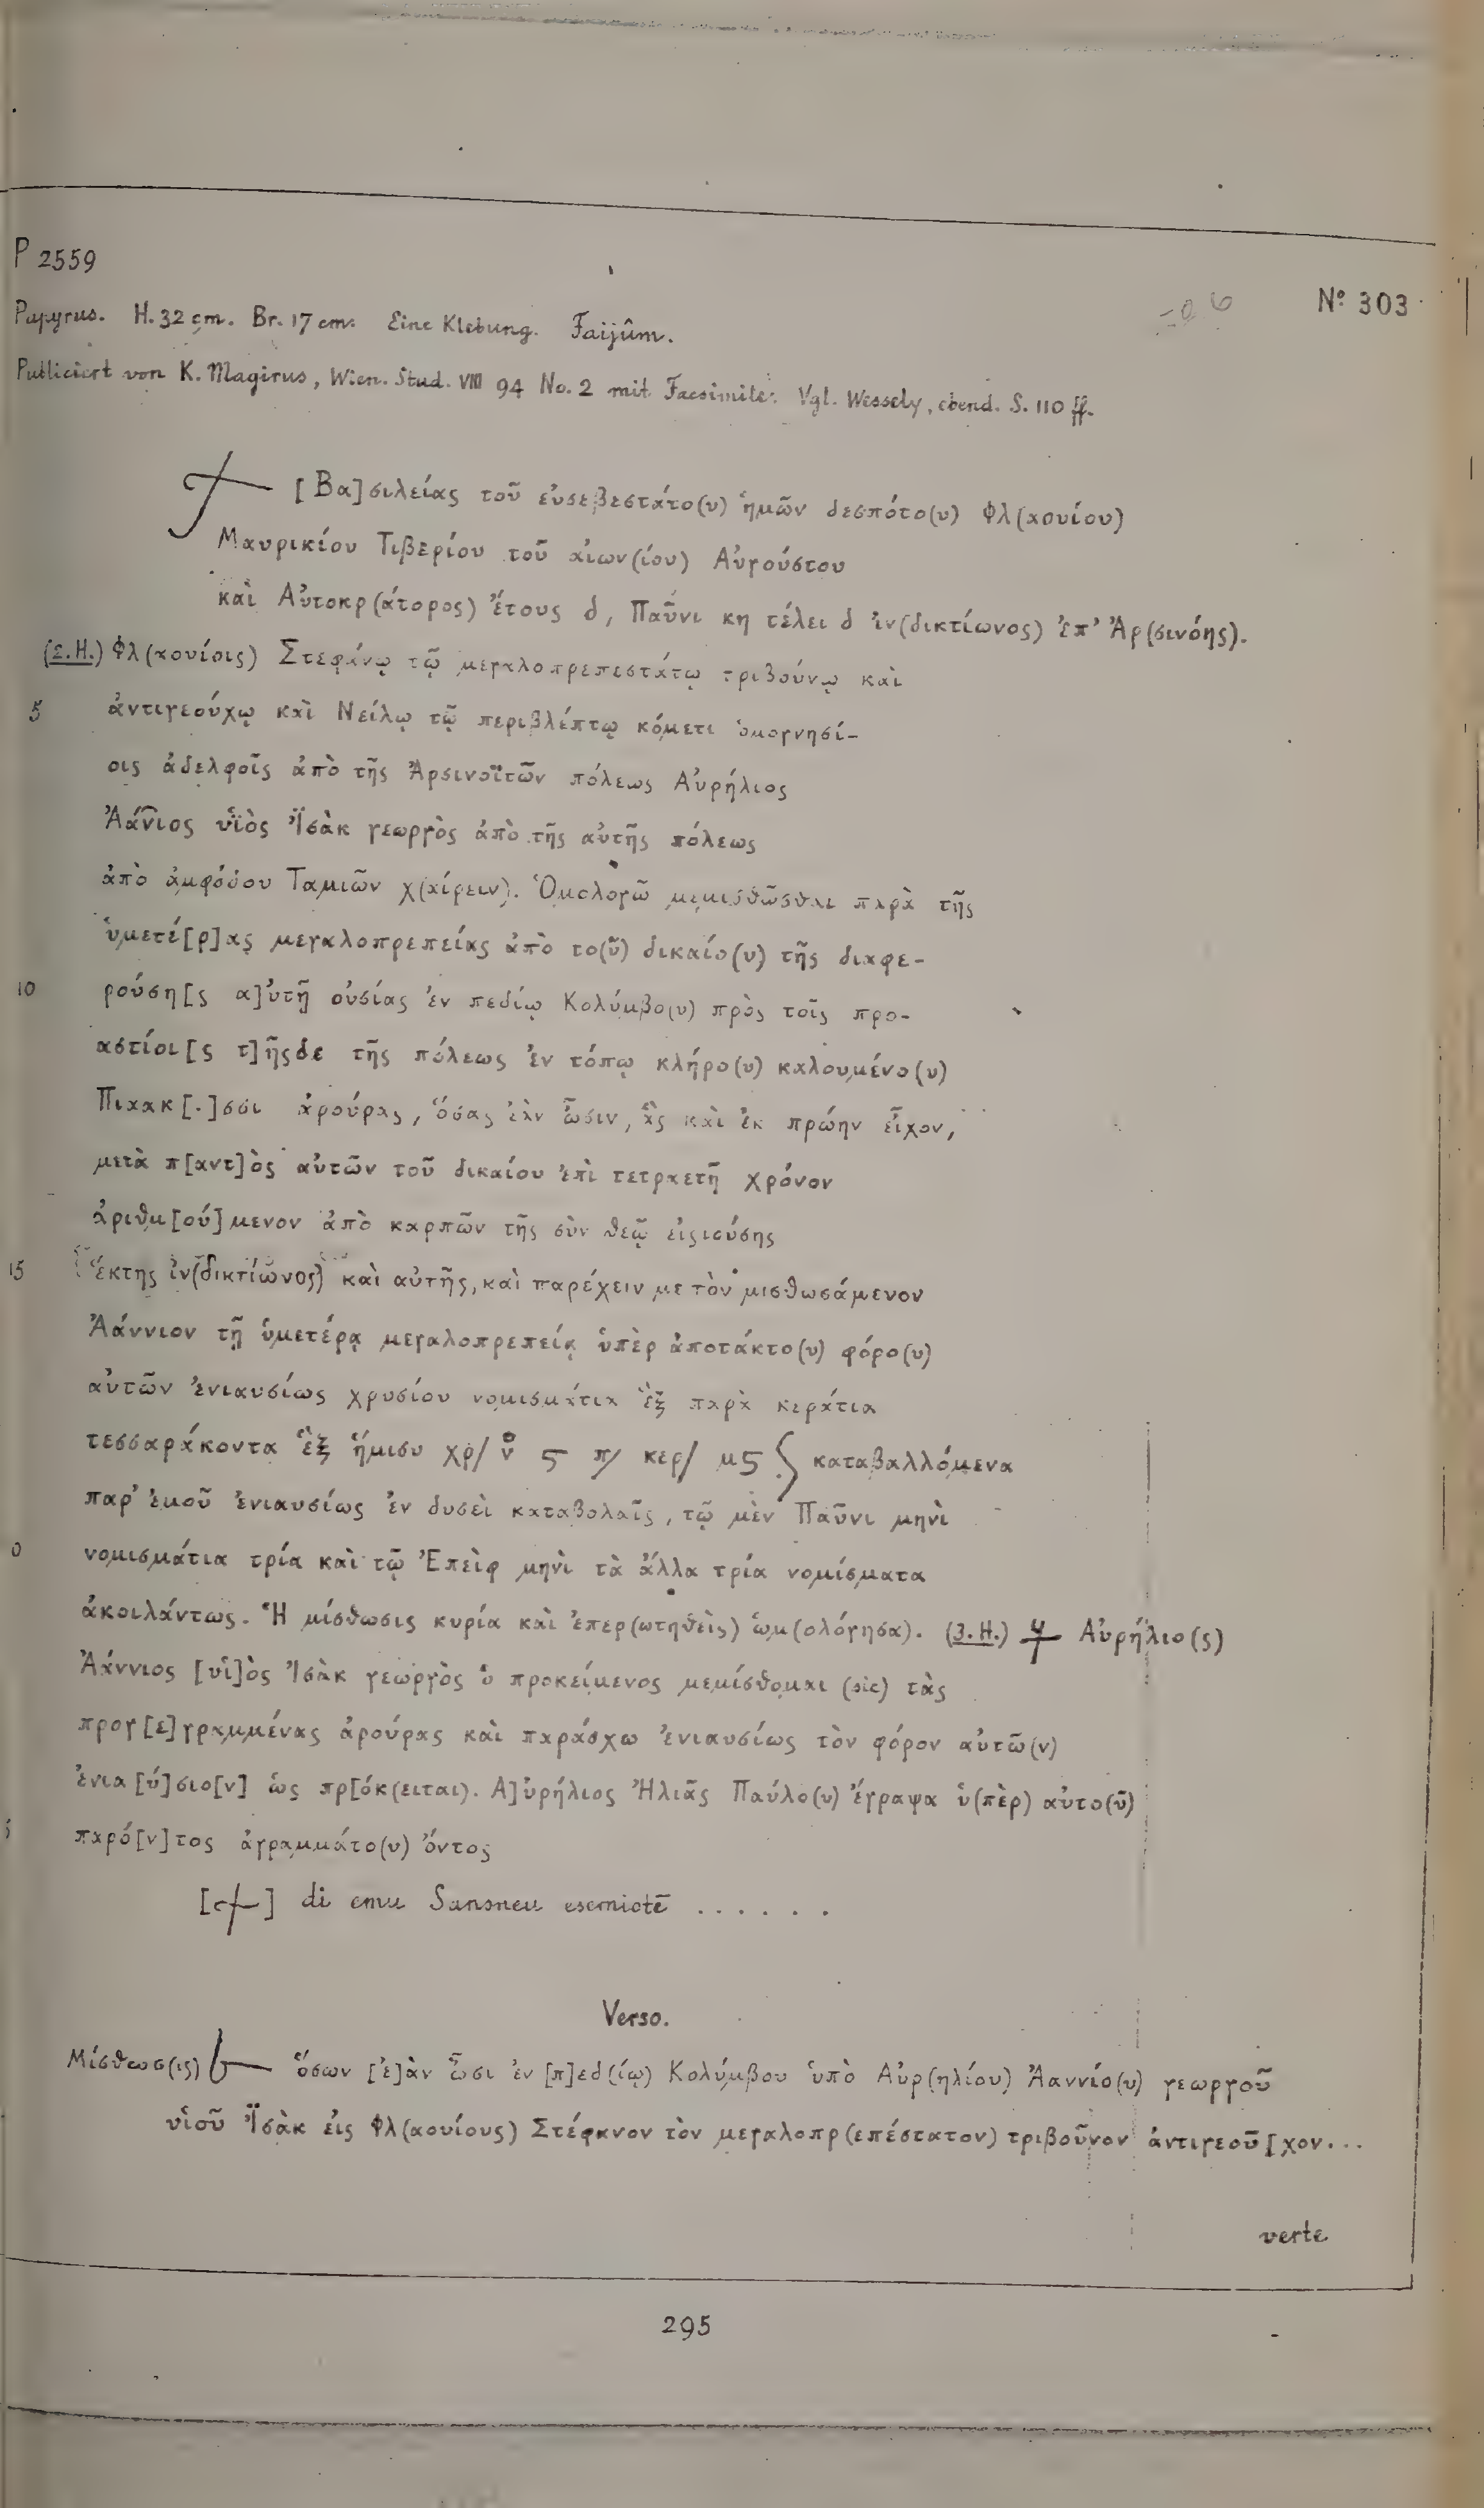 P 2559
Nº 303
Papyrus. H. 32 cm. Br. 17 cm. Eine Klebung. Faijûm.
Publiciert von K. Magirus, Wien. Stud. VIII 94 No. 2 mit Facsimile. Vgl. Wessely, ebend. S. 110 ff.
[Βα]σιλείας τοῦ εὐσεβεστάτο(υ) ἡμῶν δεσπότο(υ) Φλ(αουίου)
Μαυρικίου Τιβερίου τοῦ αἰων(ίου) Αὐγούστου
καὶ Αὐτοκρ(άτορος) ἔτους δ, Παῦνι κη τέλει δ ἰν(δικτίωνος) ἐπ' Ἀρ(σινόης).
(2. H.) Φλ(αουίοις) Στεφάνῳ τῷ μεγαλοπρεπεστάτῳ τριβούνῳ καὶ
5 ἀντιγεούχῳ καὶ Νείλῳ τῷ περιβλέπτῳ κόμετι ὁμογνησί-
οις ἀδελφοῖς ἀπὸ τῆς Ἀρσινοϊτῶν πόλεως Αὐρήλιος
Ἀάνιος υἱὸς Ἰσὰκ γεωργὸς ἀπὸ τῆς αὐτῆς πόλεως
ἀπὸ ἀμφόδου Ταμιῶν χ(αίρειν). Ὁμολογῶ μεμισθῶσθαι παρὰ τῆς
ὑμετέ[ρ]ας μεγαλοπρεπείας ἀπὸ το(ῦ) δικαίο(υ) τῆς διαφε-
10 ρούση[ς α]ὐτῇ οὐσίας ἐν πεδίῳ Κολύμβο(υ) πρὸς τοῖς προ-
αστίοι[ς τ]ῆςδε τῆς πόλεως ἐν τόπῳ κλήρο(υ) καλουμένο(υ)
Πιαακ[.]σσι ἀρούρας, ὅσας ἐὰν ὦσιν, ἃς καὶ ἐκ πρώην εἶχον,
μετὰ π[αντ]ὸς αὐτῶν τοῦ δικαίου ἐπὶ τετραετῆ χρόνον
ἀριθμ[ού]μενον ἀπὸ καρπῶν τῆς σὺν θεῷ εἰςιούσης
15 ἕκτης ἰν(δικτίωνος) καὶ αὐτῆς, καὶ παρέχειν με τὸν μισθωσάμενον
Ἀάννιον τῇ ὑμετέρᾳ μεγαλοπρεπείᾳ ὑπὲρ ἀποτάκτο(υ) φόρο(υ)
αὐτῶν ἐνιαυσίως χρυσίου νομισμάτια ἓξ παρὰ κεράτια
τεσσαράκοντα ἓξ ἥμισυ χρ/ ν° ϛ π/ κερ/ μϛ ʃ καταβαλλόμενα
παρ' ἐμοῦ ἐνιαυσίως ἐν δυσεὶ καταβολαῖς, τῷ μὲν Παῦνι μηνὶ
0 νομισμάτια τρία καὶ τῷ Ἐπεὶφ μηνὶ τὰ ἄλλα τρία νομίσματα
ἀκοιλάντως. Ἡ μίσθωσις κυρία καὶ ἐπερ(ωτηθεὶς) ὡμ(ολόγησα). (3. H.) Αὐρήλιο(ς)
Ἀάννιος [υἱ]ὸς Ἰσὰκ γεωργὸς ὁ προκείμενος μεμίσθομαι (sic) τὰς
προγ[ε]γραμμένας ἀρούρας καὶ παράσχω ἐνιαυσίως τὸν φόρον αὐτῶ(ν)
ἐνια[ύ]σιο[ν] ὡς πρ[όκ(ειται). Α]ὐρήλιος Ἠλιᾶς Παύλο(υ) ἔγραψα ὑ(πὲρ) αὐτο(ῦ)
παρό[ν]τος ἀγραμμάτο(υ) ὄντος
di emu Sansneu esemiotē ......
Verso.
Μίσθωσ(ις) ὅσων [ἐ]ὰν ὦσι ἐν [π]εδ(ίῳ) Κολύμβου ὑπὸ Αὐρ(ηλίου) Ἀαννίο(υ) γεωργοῦ
υἱοῦ Ἰσὰκ εἰς Φλ(αουίους) Στέφανον τὸν μεγαλοπρ(επέστατον) τριβοῦνον ἀντιγεοῦ[χον...
verte
295